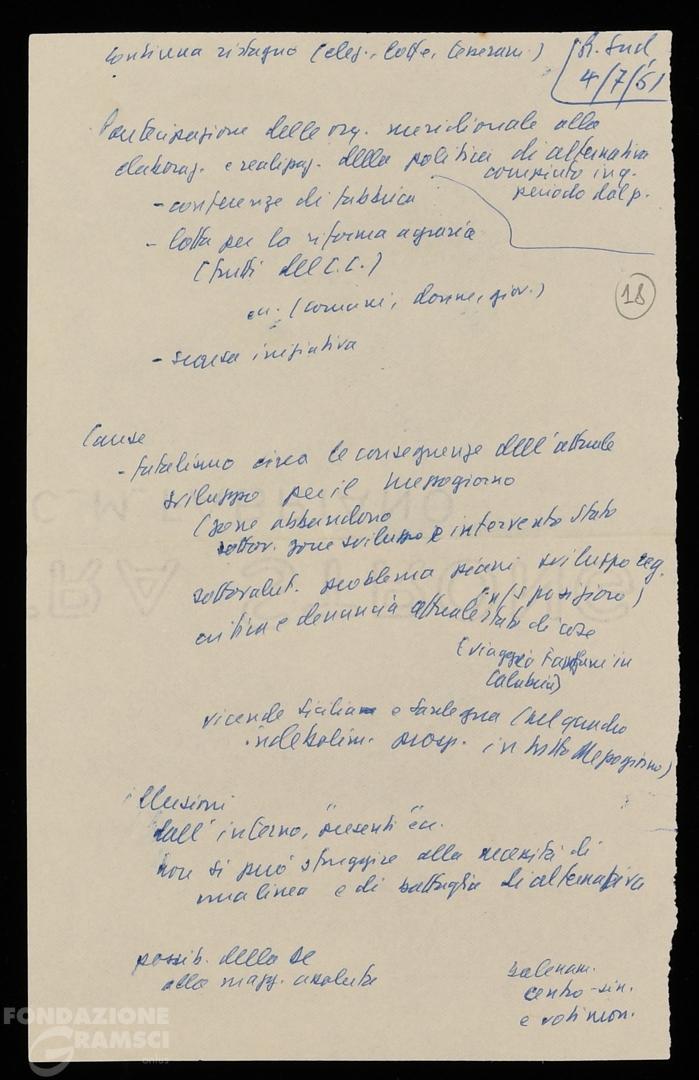 continua ristagno (elez., lotte, tesseram.)
R. Sud
4/7/61
Partecipazione delle org. meridionale alla
elaboraz. e realizzaz. della politica di alternativa
compiuto in q.
periodo dal p.
- conferenze di fabbrica
- lotta per la riforma agraria
(frutti del C.C.)
ecc. (comuni, donne, giov.)
18
- scarsa iniziativa
Cause
- fatalismo circa le conseguenze dell'attuale
sviluppo per il Mezzogiorno
(zone abbandono
sottov. zone sviluppo e intervento Stato
sottovalut. problema piani sviluppo reg.
critica e denuncia attuale stato di cose
(viaggio Fanfani in
Calabria)
vicende Sicilia e Sardegna (nel quadro
indebolim. prosp. in tutto Mezzogiorno)
illusioni
dall'interno, "presenti" ecc.
non si può sfuggire alla necessità di
una linea e di battaglia di alternativa
possib. della DC
alla magg. assoluta
centro-sin.
e voti mon.
FONDAZIONE
GRAMSCI
onlus